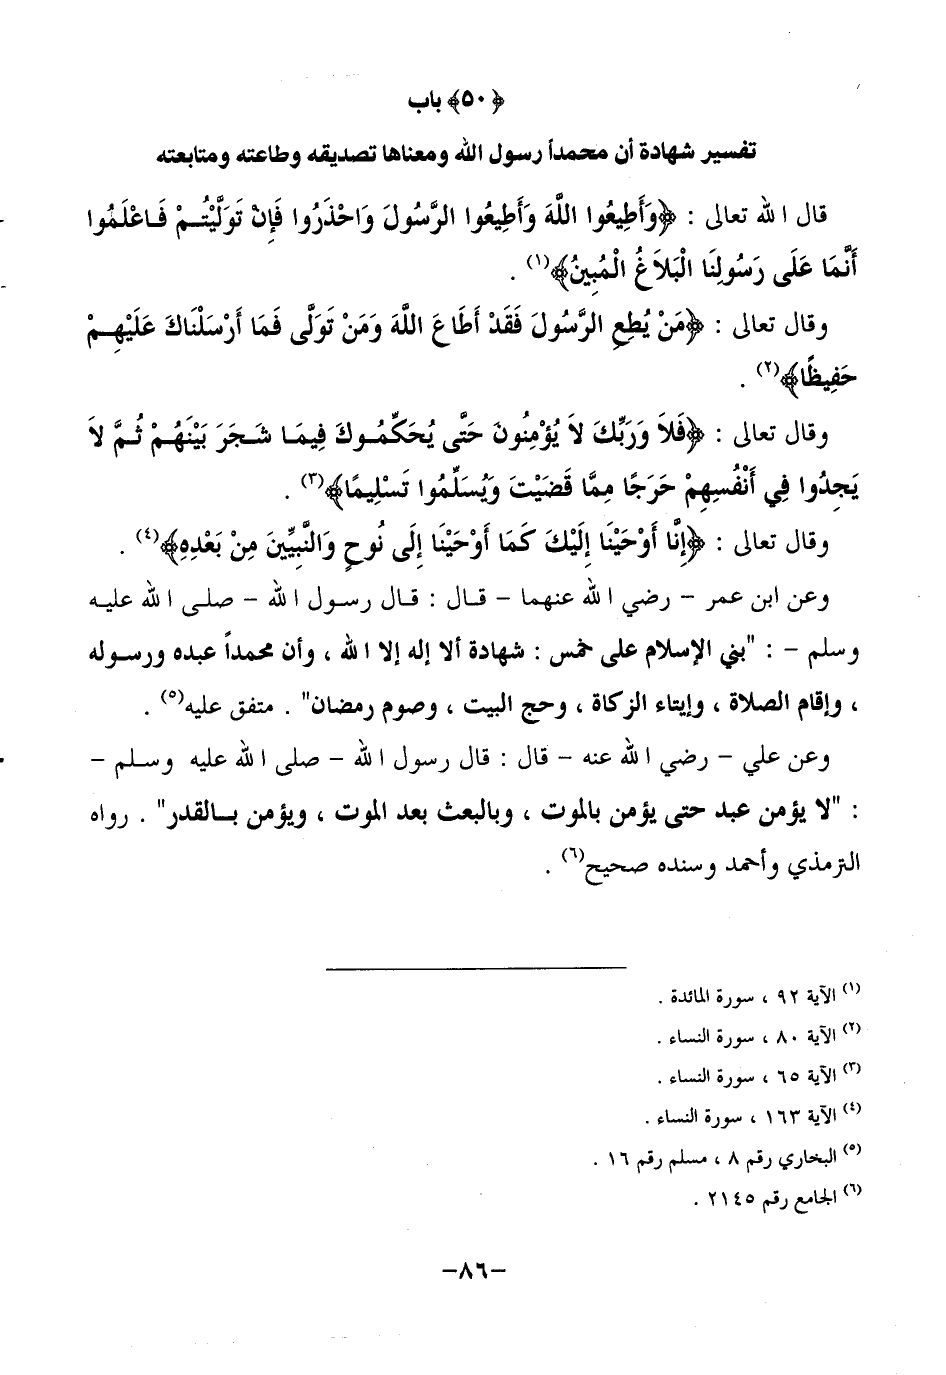 ﴿٥٠﴾ باب
تفسير شهادة أن محمداً رسول الله ومعناها تصديقه وطاعته ومتابعته
قال الله تعالى : ﴿وَأَطِيعُوا اللَّهَ وَأَطِيعُوا الرَّسُولَ وَاحْذَرُوا فَإِنْ تَوَلَّيْتُمْ فَاعْلَمُوا
أَنَّمَا عَلَى رَسُولِنَا الْبَلاَغُ الْمُبِينُ﴾(١) .
وقال تعالى : ﴿مَنْ يُطِعِ الرَّسُولَ فَقَدْ أَطَاعَ اللَّهَ وَمَنْ تَوَلَّى فَمَا أَرْسَلْنَاكَ عَلَيْهِمْ
حَفِيظًا﴾(٢) .
وقال تعالى : ﴿فَلاَ وَرَبِّكَ لاَ يُؤْمِنُونَ حَتَّى يُحَكِّمُوكَ فِيمَا شَجَرَ بَيْنَهُمْ ثُمَّ لاَ
يَجِدُوا فِي أَنْفُسِهِمْ حَرَجًا مِمَّا قَضَيْتَ وَيُسَلِّمُوا تَسْلِيمًا﴾(٣) .
وقال تعالى : ﴿إِنَّا أَوْحَيْنَا إِلَيْكَ كَمَا أَوْحَيْنَا إِلَى نُوحٍ وَالنَّبِيِّينَ مِنْ بَعْدِهِ﴾(٤) .
وعن ابن عمر – رضي الله عنهما – قال : قال رسول الله – صلى الله عليه
وسلم – : "بني الإسلام على خمس : شهادة ألا إله إلا الله ، وأن محمداً عبده ورسوله
، وإقام الصلاة ، وإيتاء الزكاة ، وحج البيت ، وصوم رمضان" . متفق عليه(٥) .
وعن علي – رضي الله عنه – قال : قال رسول الله – صلى الله عليه وسلم –
: "لا يؤمن عبد حتى يؤمن بالموت ، وبالبعث بعد الموت ، ويؤمن بالقدر" . رواه
الترمذي وأحمد وسنده صحيح(٦) .
(١) الآية ٩٢ ، سورة المائدة .
(٢) الآية ٨٠ ، سورة النساء .
(٣) الآية ٦٥ ، سورة النساء .
(٤) الآية ١٦٣ ، سورة النساء .
(٥) البخاري رقم ٨ ، مسلم رقم ١٦ .
(٦) الجامع رقم ٢١٤٥ .
–٨٦–